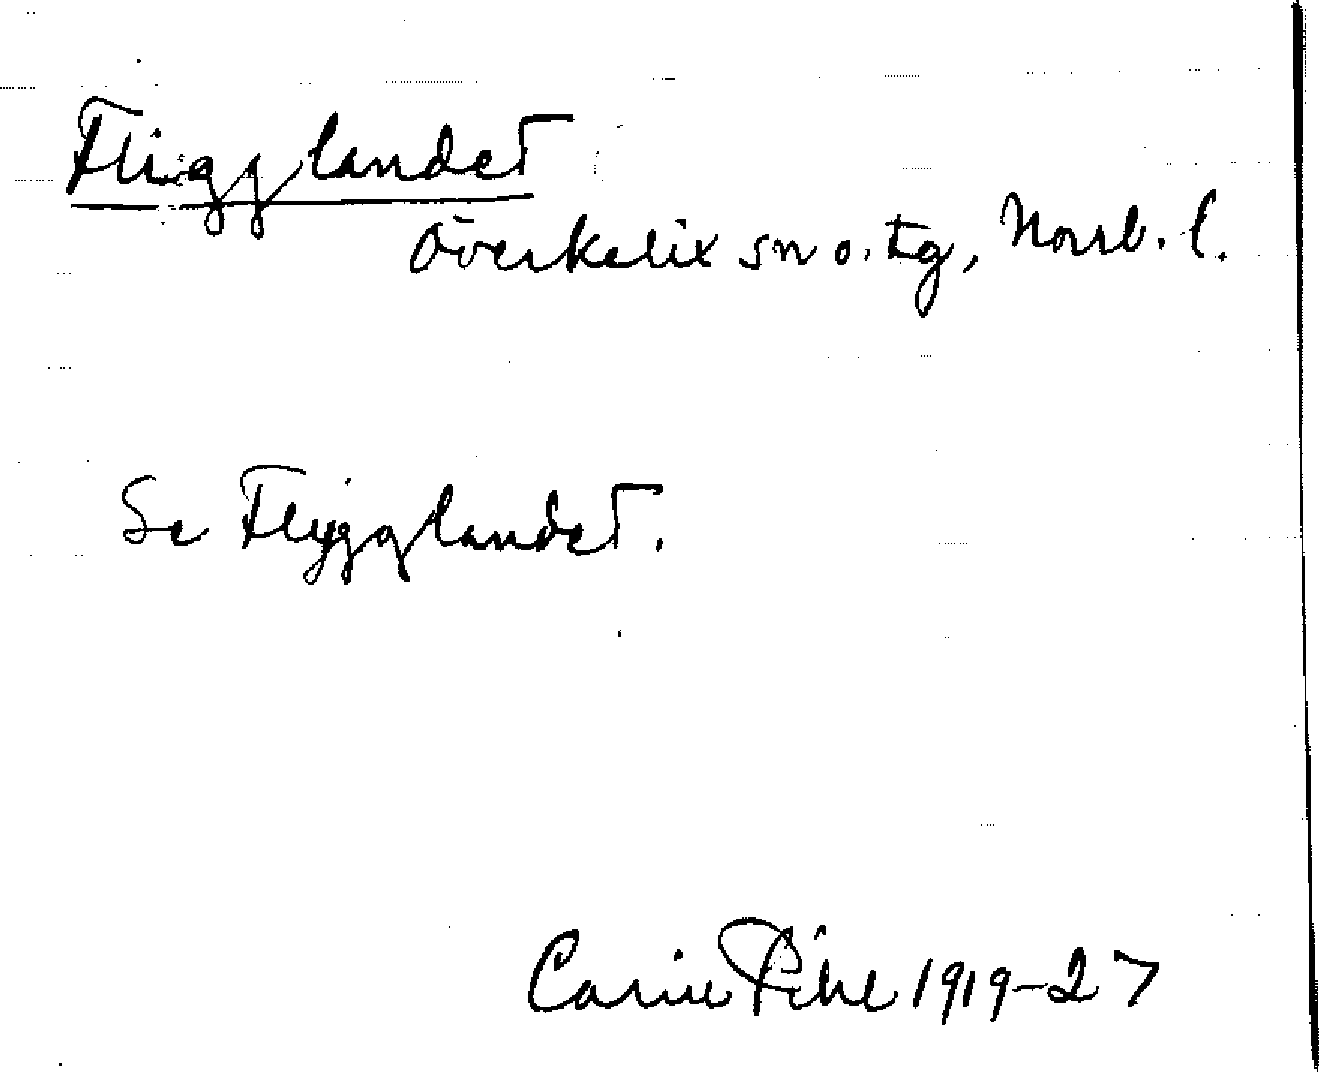 Fligglandet
Överkalix sn o. tg, Norrb. l.
Se Flygglandet.
Carin Pihl 1919-27